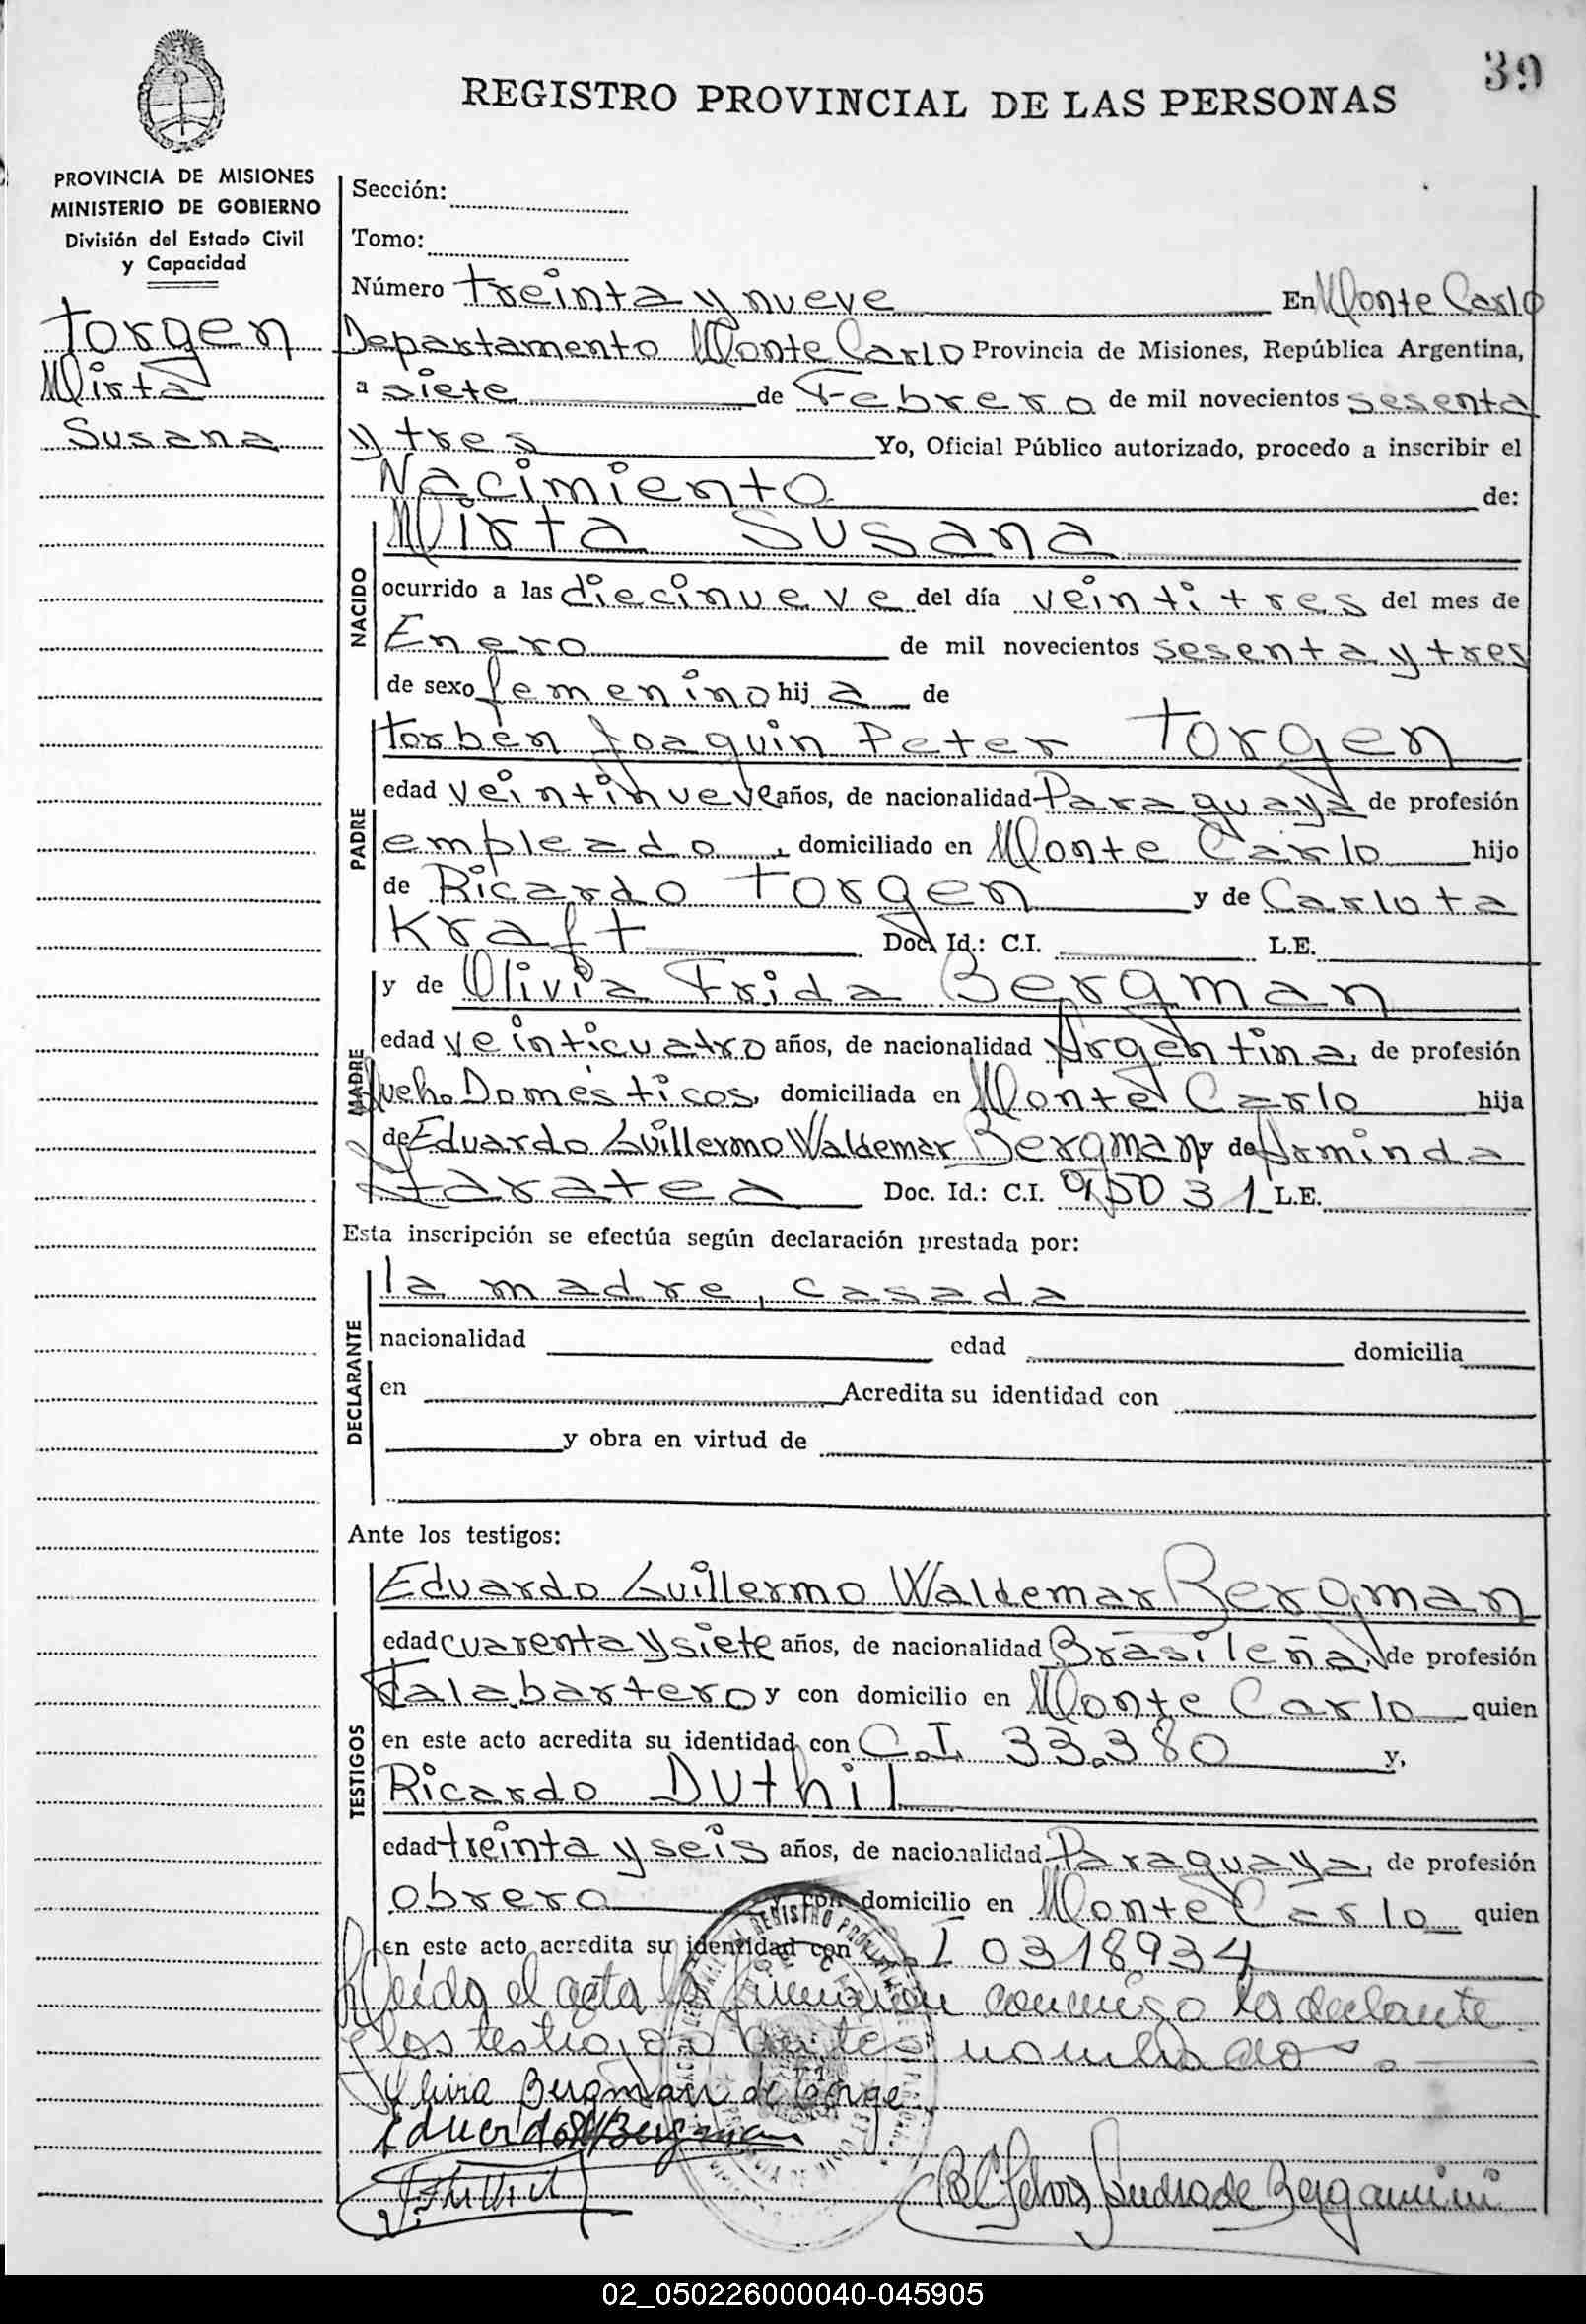 39
REGISTRO PROVINCIAL DE LAS PERSONAS
PROVINCIA DE MISIONES
MINISTERIO DE GOBIERNO
División del Estado Civil
y Capacidad
Torgen
Mirta
Susana
Sección:
Tomo:
Número treinta y nueve En Monte Carlo
Departamento Monte Carlo Provincia de Misiones, República Argentina,
a siete de Febrero de mil novecientos sesenta
y tres Yo, Oficial Público autorizado, procedo a inscribir el
Nacimiento de:
NACIDO
Mirta Susana
ocurrido a las diecinueve del día veintitres del mes de
Enero de mil novecientos sesenta y tres
de sexo femenino hija de
PADRE
Torben Joaquin Peter Torgen
edad veintinueve años, de nacionalidad Paraguaya de profesión
empleado, domiciliado en Monte Carlo hijo
de Ricardo Torgen y de Carlota
Kraft Doc. Id.: C.I. L.E.
MADRE
y de Olivia Frida Bergman
edad veinticuatro años, de nacionalidad Argentina, de profesión
Queh. Domésticos, domiciliada en Monte Carlo hija
de Eduardo Guillermo Waldemar Bergman y de Arminda
Doc. Id.: C.I. 95031 L.E.
Esta inscripción se efectúa según declaración prestada por:
DECLARANTE
la madre, casada
nacionalidad edad domicilia
en Acredita su identidad con
y obra en virtud de
Ante los testigos:
TESTIGOS
Eduardo Guillermo Waldemar Bergman
edad cuarenta y siete años, de nacionalidad Brasileña, de profesión
Talabartero y con domicilio en Monte Carlo quien
en este acto acredita su identidad con C.I. 33.380 y,
Ricardo Duthil
edad treinta y seis años, de nacionalidad Paraguaya, de profesión
obrero y con domicilio en Monte Carlo quien
en este acto acredita su identidad con I 0318934
Leída el acta la firmaron conmigo la declante
y los testigos antes nombrados.
Bergman de Torge
Eduardo Bergman
Andrade Bergamini
02_050226000040-045905